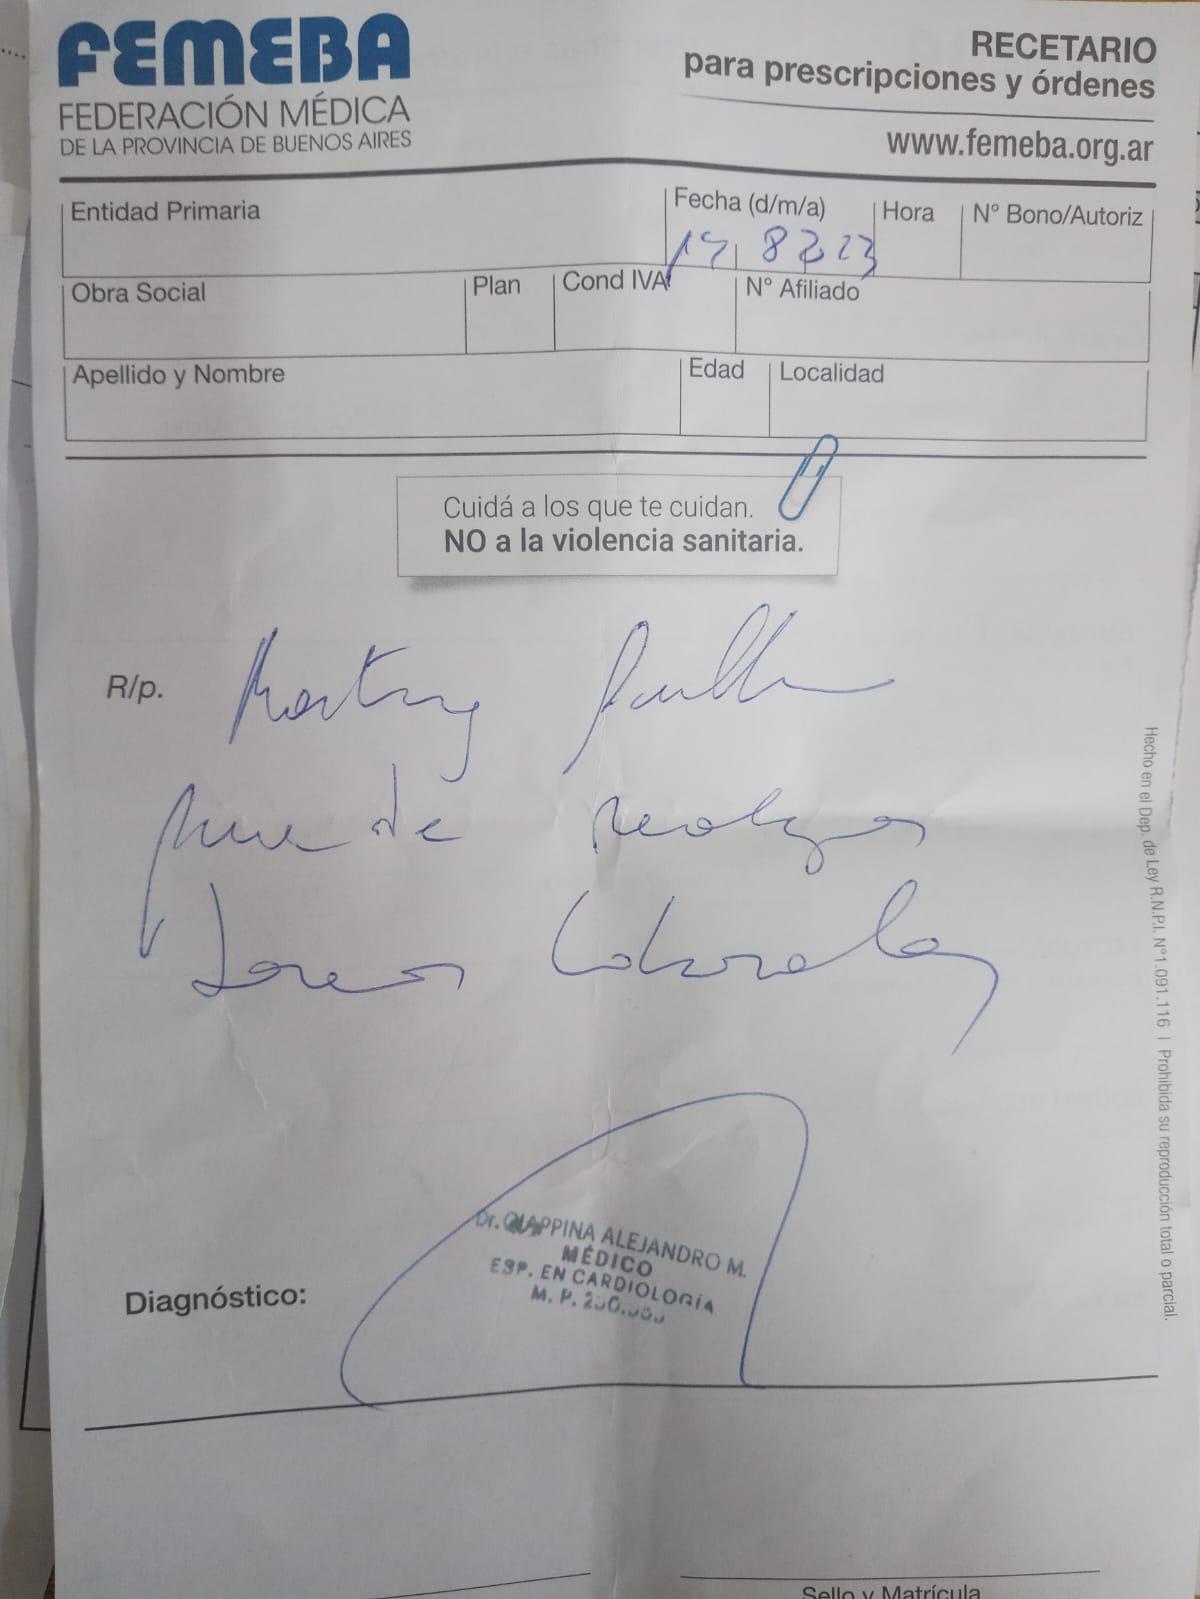 FEMEBA
FEDERACIÓN MÉDICA
DE LA PROVINCIA DE BUENOS AIRES
RECETARIO
para prescripciones y órdenes
www.femeba.org.ar
Entidad Primaria
Fecha (d/m/a) Hora N° Bono/Autoriz
8 23
Obra Social Plan Cond IVA N° Afiliado
Apellido y Nombre Edad Localidad
Cuidá a los que te cuidan.
NO a la violencia sanitaria.
R/p. Martínez
puede realizar
tareas laborales
Dr. CHIAPPINA ALEJANDRO M.
MÉDICO
ESP. EN CARDIOLOGÍA
M. P.
Diagnóstico:
Sello y Matrícula
Hecho en el Dep. de Ley R.N.P.I. N°1.091.116 | Prohibida su reproducción total o parcial.